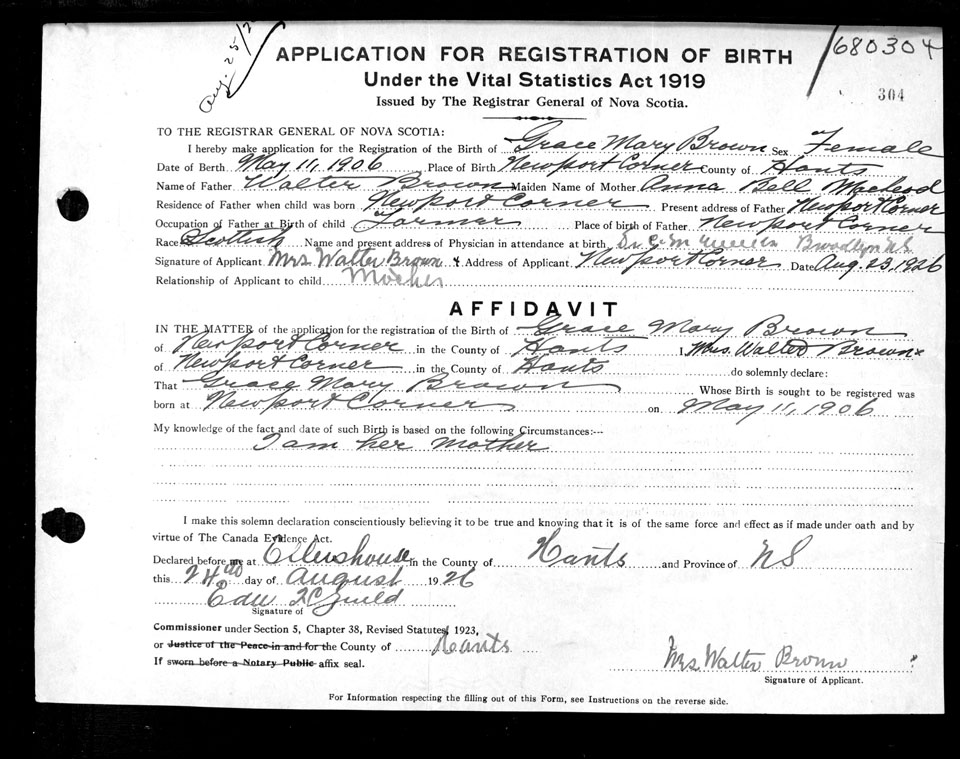 Aug. 25/2
680304
304
APPLICATION FOR REGISTRATION OF BIRTH
Under the Vital Statistics Act 1919
Issued by The Registrar General of Nova Scotia.
TO THE REGISTRAR GENERAL OF NOVA SCOTIA:
I hereby make application for the Registration of the Birth of Grace Mary Brown Sex Female
Date of Birth May 11, 1906 Place of Birth Newport Corner County of Hants
Name of Father Walter Brown Maiden Name of Mother Anna Bell Macleod
Residence of Father when child was born Newport Corner Present address of Father Newport Corner
Occupation of Father at Birth of child Farmer Place of birth of Father Newport Corner
Race Scottish Name and present address of Physician in attendance at birth Dr. C. M
Signature of Applicant Mrs Walter Brown & Address of Applicant Newport Corner Date Aug. 23, 1926
Relationship of Applicant to child Mother
AFFIDAVIT
IN THE MATTER of the application for the registration of the Birth of Grace Mary Brown
of Newport Corner in the County of Hants I, Mrs. Walter Brown
of Newport Corner in the County of Hants do solemnly declare:
That Grace Mary Brown Whose Birth is sought to be registered was
born at Newport Corner on May 11, 1906
My knowledge of the fact and date of such Birth is based on the following Circumstances:--
I am her Mother
I make this solemn declaration conscientiously believing it to be true and knowing that it is of the same force and effect as if made under oath and by
virtue of The Canada Evidence Act.
Declared before me at Ellershouse in the County of Hants and Province of NS
this 24th day of August 1926
Signature of
Commissioner under Section 5, Chapter 38, Revised Statutes, 1923,
or Justice of the Peace in and for the County of Hants
If sworn before a Notary Public affix seal.
Mrs. Walter Brown
Signature of Applicant.
For Information respecting the filling out of this Form, see Instructions on the reverse side.